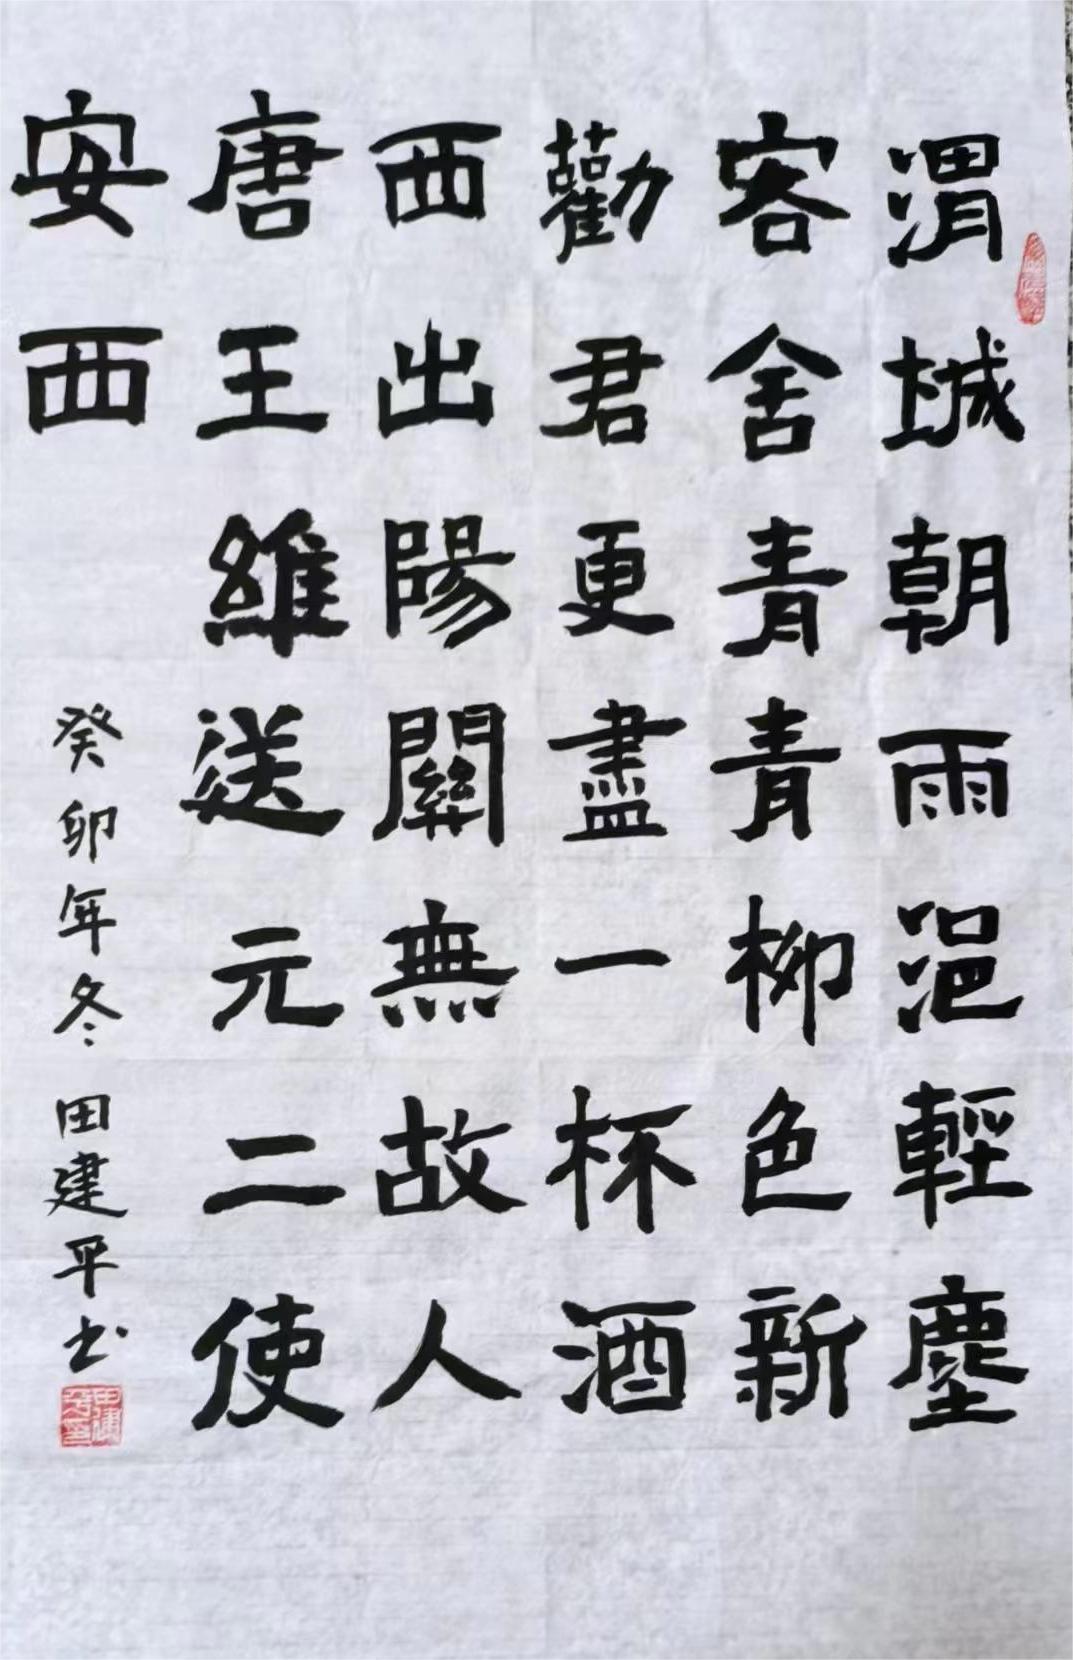 渭城朝雨浥輕塵
客舍青青柳色新
勸君更盡一杯酒
西出陽關無故人
唐王維送元二使
安西
癸卯年冬 田建平书